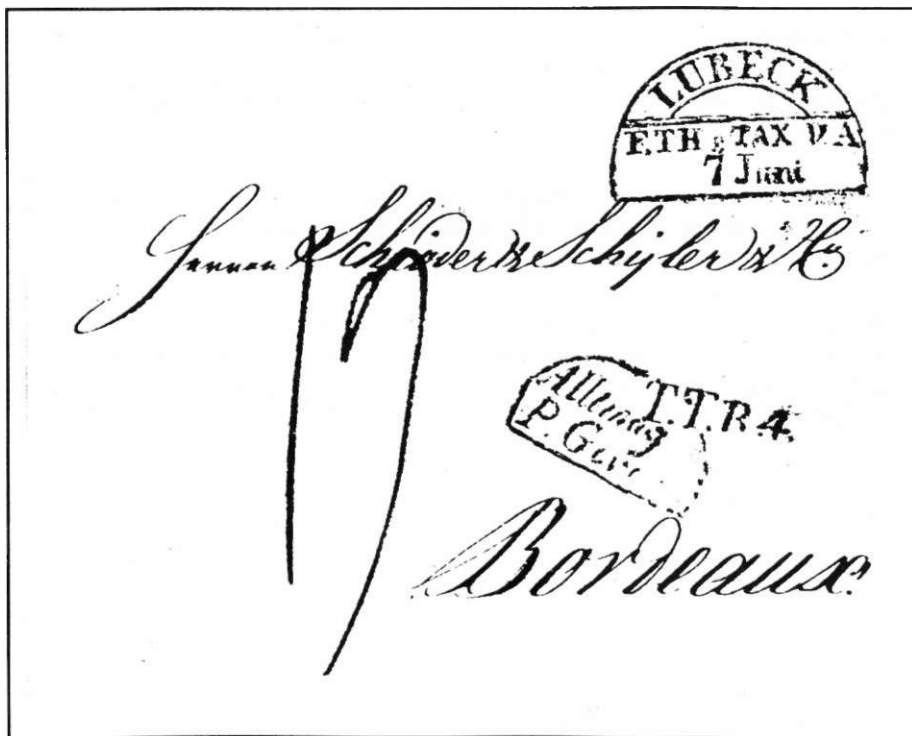 LUBECK
F.TH & TAX P.A
7 Juni
Herren Schröder & Schÿler &
Allemag T.T.R.4.
P.
Bordeaux.